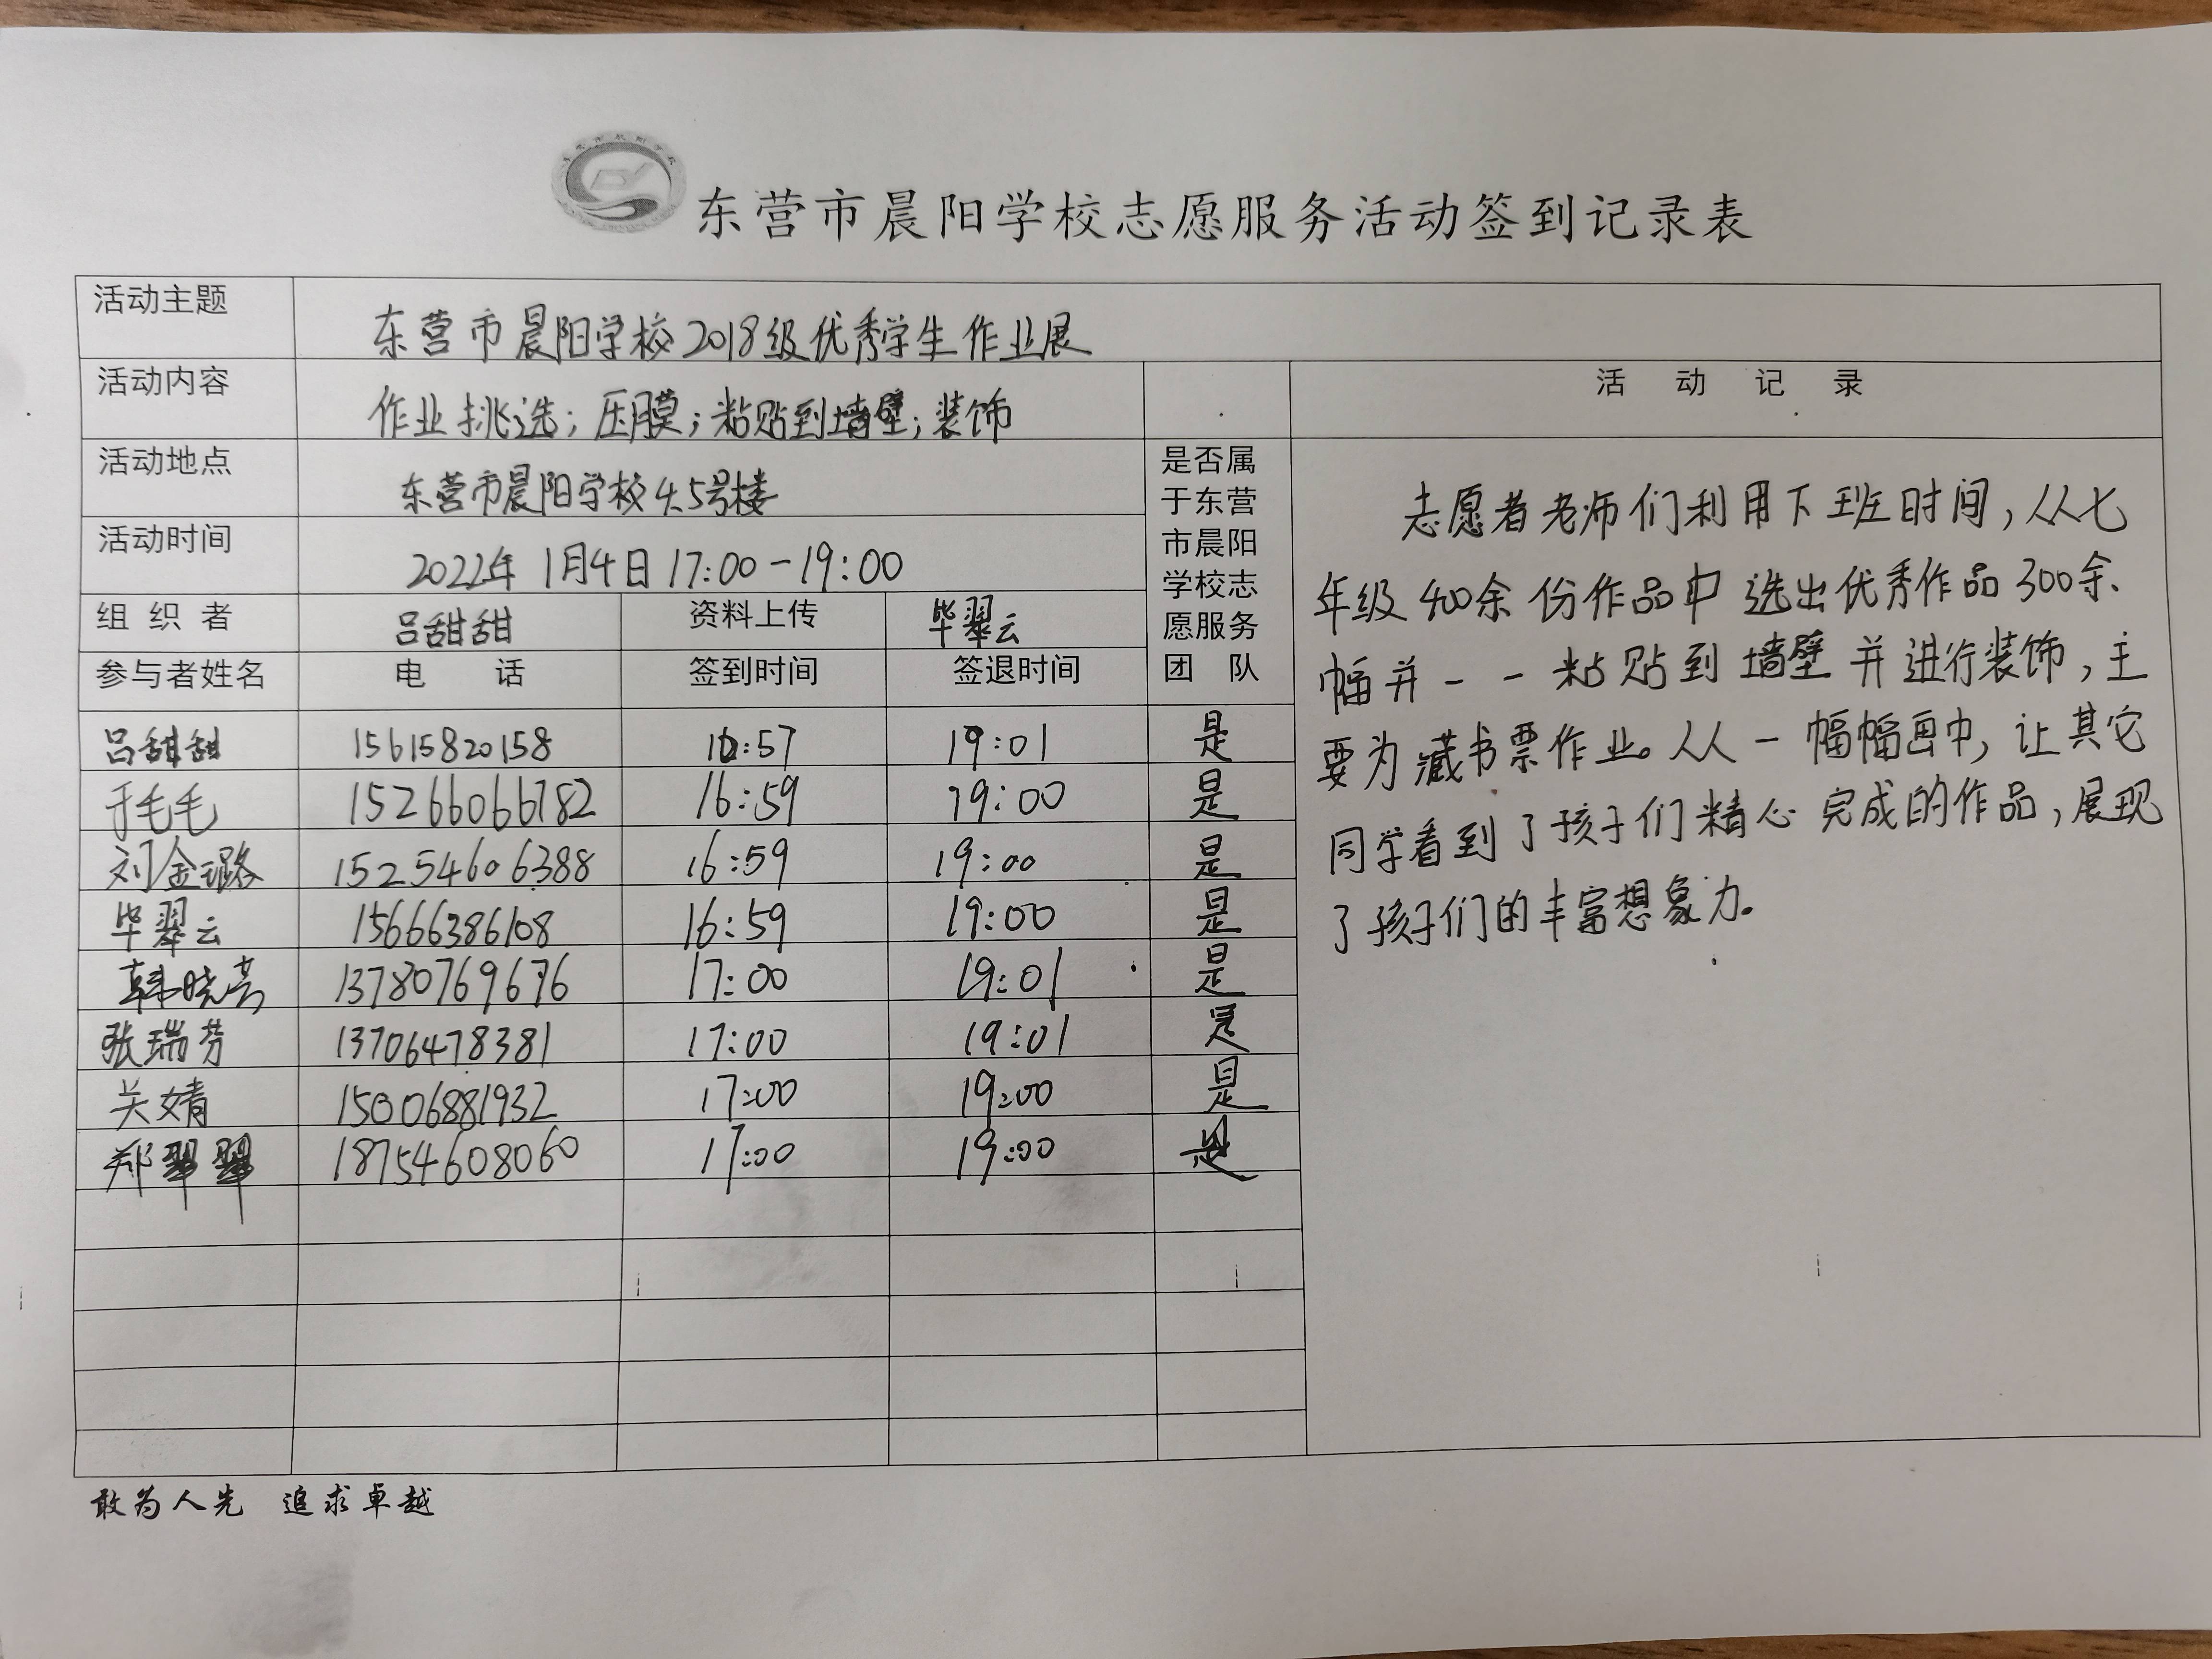 东营市晨阳学校志愿服务活动签到记录表
活动主题 东营市晨阳学校2018级优秀学生作业展
活动内容 作业挑选；压膜；粘贴到墙壁；装饰
活动地点 东营市晨阳学校4.5号楼
活动时间 2022年1月4日17:00-19:00
组织者 吕甜甜 资料上传 毕翠云
参与者姓名 电话 签到时间 签退时间
是否属
于东营
市晨阳
学校志
愿服务
团队
吕甜甜 15615820158 16:57 19:01 是
于毛毛 15266066782 16:59 19:00 是
刘金璐 15254606388 16:59 19:00 是
毕翠云 15666386108 16:59 19:00 是
韩晓芳 13780769676 17:00 19:01 是
张瑞芬 13706478381 17:00 19:01 是
关婧 15006881932 17:00 19:00 是
郑翠翠 18754608060 17:00 19:00 是
活动记录
志愿者老师们利用下班时间，从七
年级400余份作品中选出优秀作品300余
幅并一一粘贴到墙壁并进行装饰，主
要为藏书票作业。从一幅幅画中，让其它
同学看到了孩子们精心完成的作品，展现
了孩子们的丰富想象力。
敢为人先 追求卓越